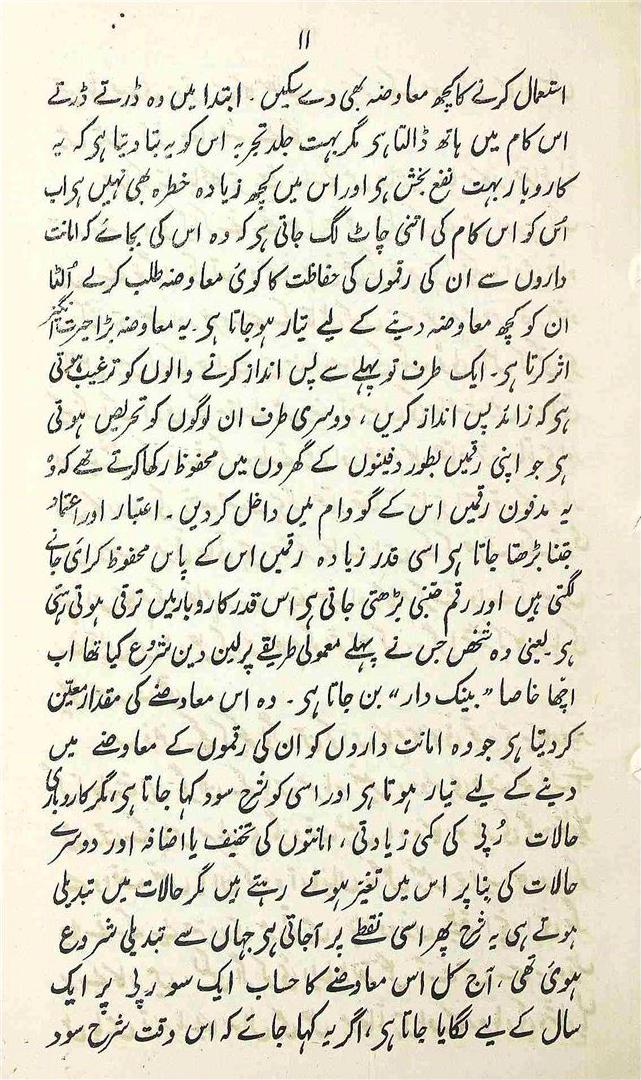 ۱۱
استعمال کرنے کا کچھ معاوضہ بھی دے سکیں۔ ابتدا میں وہ ڈرتے ڈرتے
اس کام میں ہاتھ ڈالتا ہی مگر بہت جلد تجربہ اس کو یہ بتا دیتا ہی کہ یہ
کاروبار بہت نفع بخش ہی اور اس میں کچھ زیادہ خطرہ بھی نہیں ہی اب
اُس کو اس کام کی اتنی چاٹ لگ جاتی ہی کہ وہ اس کی بجائے کہ امانت
داروں سے ان کی رقموں کی حفاظت کا کوئی معاوضہ طلب کرے اُلٹا
ان کو کچھ معاوضہ دینے کے لیے تیار ہو جاتا ہی۔ یہ معاوضہ بڑا حیرت انگیز
اثر کرتا ہی۔ ایک طرف تو پہلے سے پس انداز کرنے والوں کو ترغیب ہوتی
ہی کہ زائد پس انداز کریں، دوسری طرف ان لوگوں کو تحریص ہوتی
ہی جو اپنی رقمیں بطور دفینوں کے گھروں میں محفوظ رکھا کرتے تھے کہ وہ
یہ مدفون رقمیں اس کے گودام میں داخل کر دیں۔ اعتبار اور اعتماد
جتنا بڑھتا جاتا ہی اسی قدر زیادہ رقمیں اس کے پاس محفوظ کرائی جانے
لگتی ہیں اور رقم جتنی بڑھتی جاتی ہی اس قدر کاروبار میں ترقی ہوتی رہتی
ہی یعنی وہ شخص جس نے پہلے معمولی طریقے پر لین دین شروع کیا تھا اب
اچھا خاصا ”بینک دار“ بن جاتا ہی۔ وہ اس معاوضے کی مقدار معیّن
کر دیتا ہی جو وہ امانت داروں کو ان کی رقموں کے معاوضے میں
دینے کے لیے تیار ہوتا ہی اور اسی کو شرح سود کہا جاتا ہی، مگر کاروباری
حالات رُپے کی کمی زیادتی، امانتوں کی تخفیف یا اضافہ اور دوسرے
حالات کی بنا پر اس میں تغیّر ہوتے رہتے ہیں مگر حالات میں تبدیلی
ہوتے ہی یہ شرح پھر اسی نقطے پر آ جاتی ہی جہاں سے تبدیلی شروع
ہوئی تھی، آج کل اس معاوضے کا حساب ایک سو رُپے پر ایک
سال کے لیے لگایا جاتا ہی، اگر یہ کہا جائے کہ اس وقت شرح سود